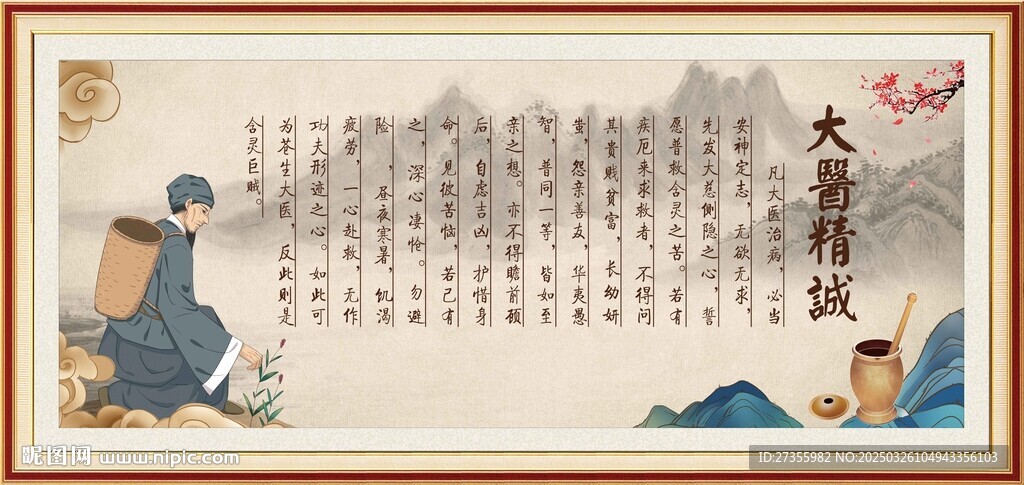 大醫精誠
凡大医治病，必当
安神定志，无欲无求，
先发大慈恻隐之心，誓
愿普救含灵之苦。若有
疾厄来求救者，不得问
其贵贱贫富，长幼妍
蚩，怨亲善友，华夷愚
智，普同一等，皆如至
亲之想。亦不得瞻前顾
后，自虑吉凶，护惜身
命。见彼苦恼，若己有
之，深心凄怆。勿避
险，昼夜寒暑，饥渴
疲劳，一心赴救，无作
功夫形迹之心。如此可
为苍生大医，反此则是
含灵巨贼。
昵图网 www.nipic.com
ID:27355982 NO:20250326104943356103